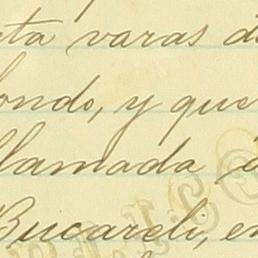 ta varas de
fondo, y que
llamada
Bucareli, en